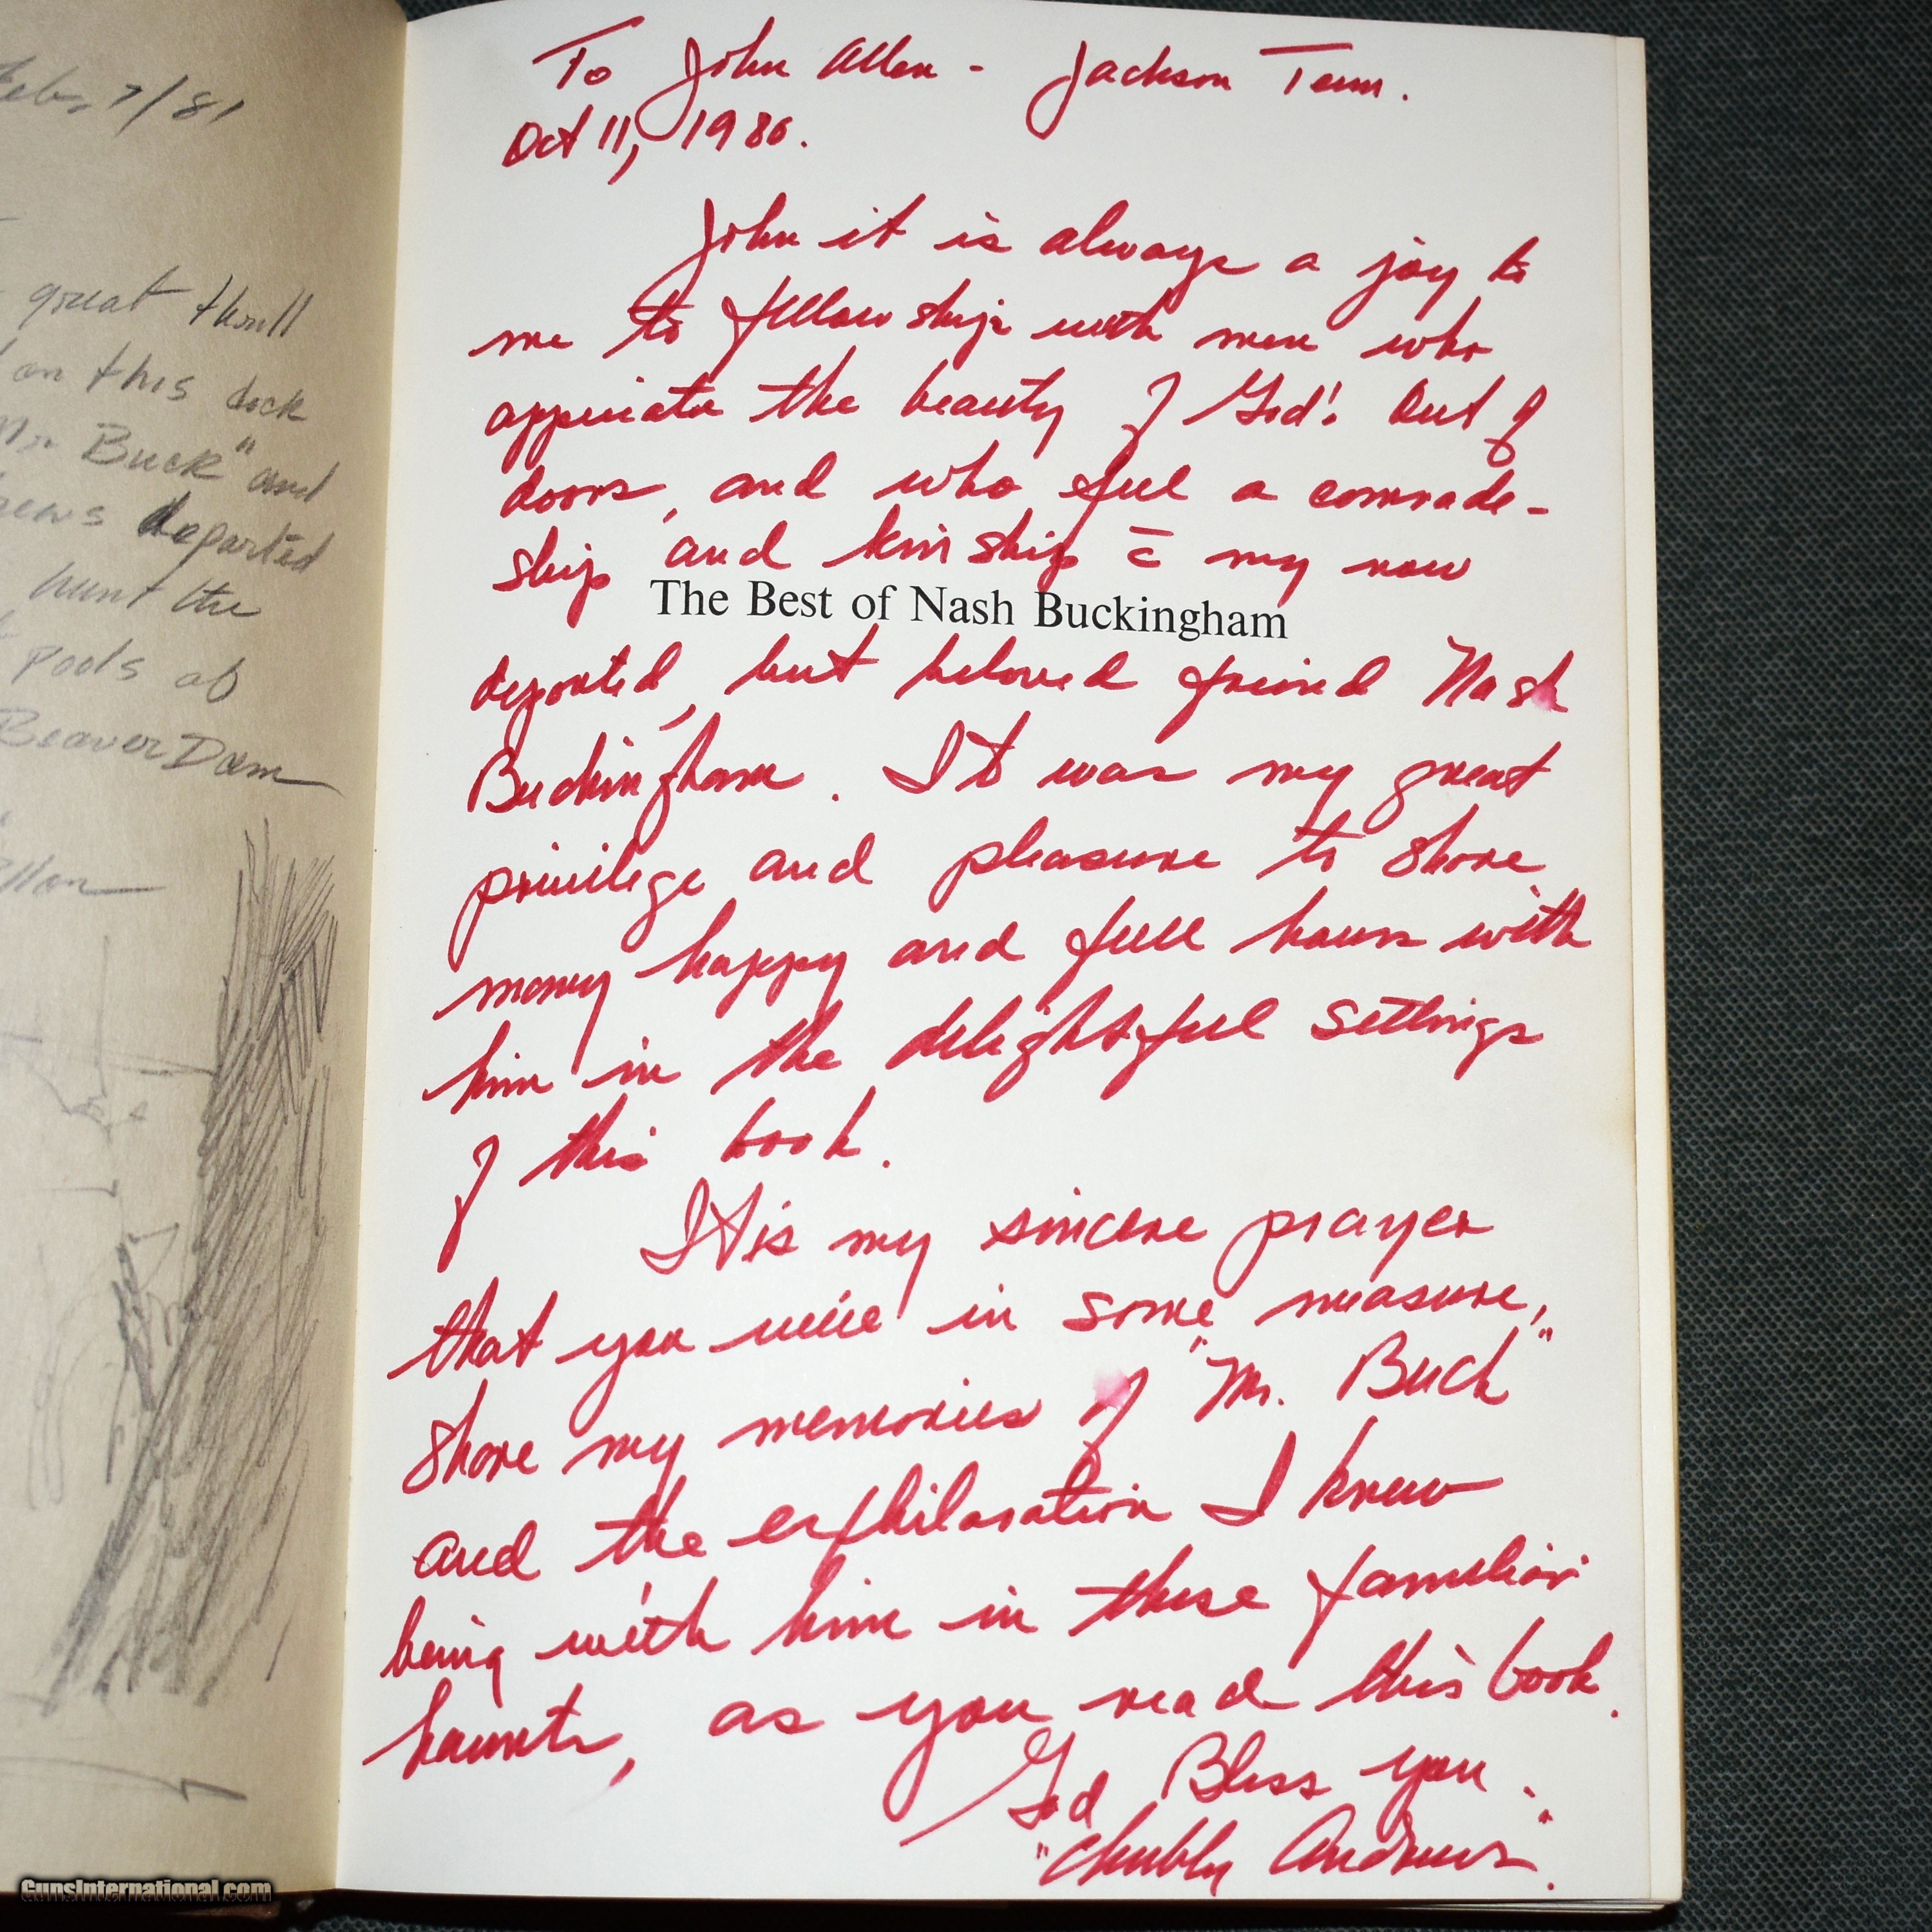 Feb, 7/81
great thrill
on this dock
Mr Buck" and
departed
hunt the
Pools at
Beaver Dam
To John Allen - Jackson Tenn.
Oct 11, 1980.
John it is always a joy to
me to fellowship with men who
appriciate the beauty of God's Out of
doors, and who feel a comrade-
ship and kinship c̄ my now
The Best of Nash Buckingham
departed, but beloved friend Nash
Buckingham. It was my great
privilege and pleasure to share
many happy and full hours with
him in the delightful settings
of this book.
It is my sincere prayer
that you will in some measure,
share my memories of "Mr. Buck"
and the exhilaration I knew
being with him in these familiar
haunts, as you read this book.
God Bless you.
"Chubby Andrews".
GunsInternational.com